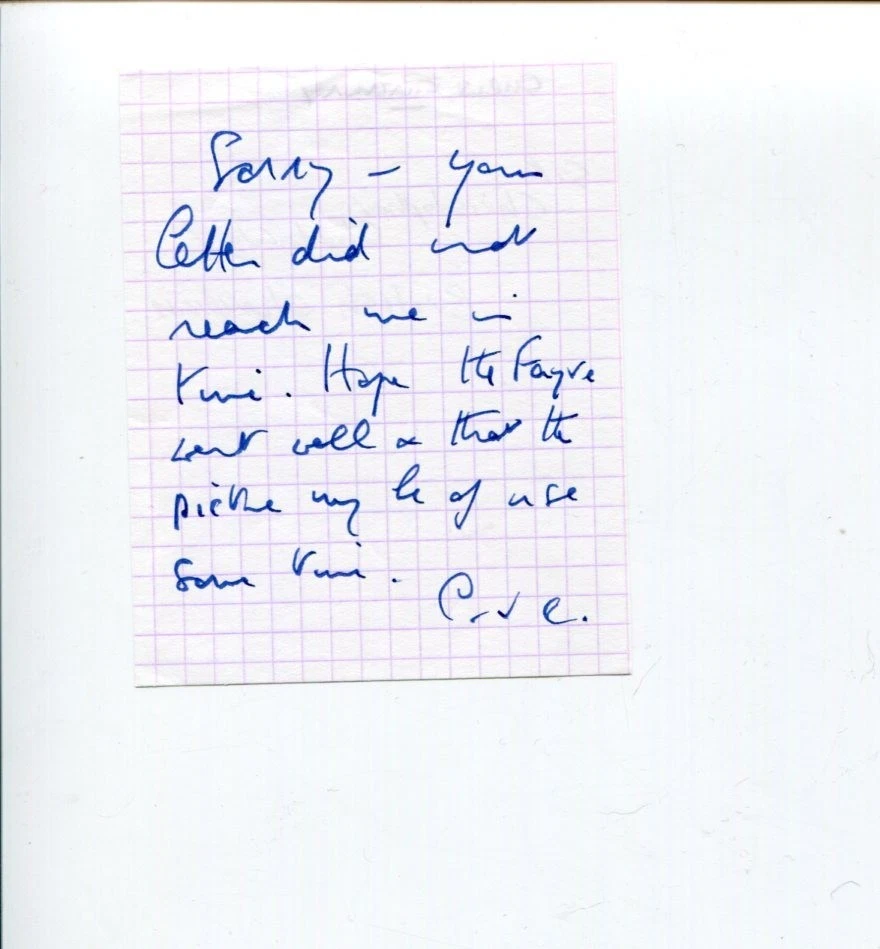 Sorry – your
letter did not
reach me in
time. Hope the Fayre
went well & that the
picture may be of use
some time.